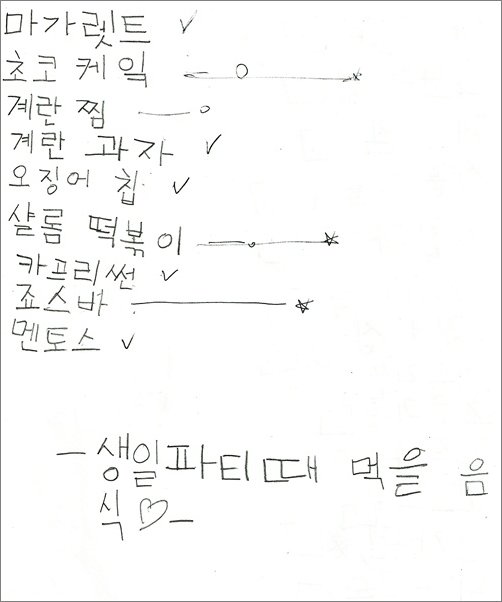 마가렛트 ✓
초코케익
계란찜
계란 과자 ✓
오징어 칩 ✓
샬롬 떡볶이
카프리썬 ✓
죠스바
멘토스 ✓
- 생일파티때 먹을 음
식♡-